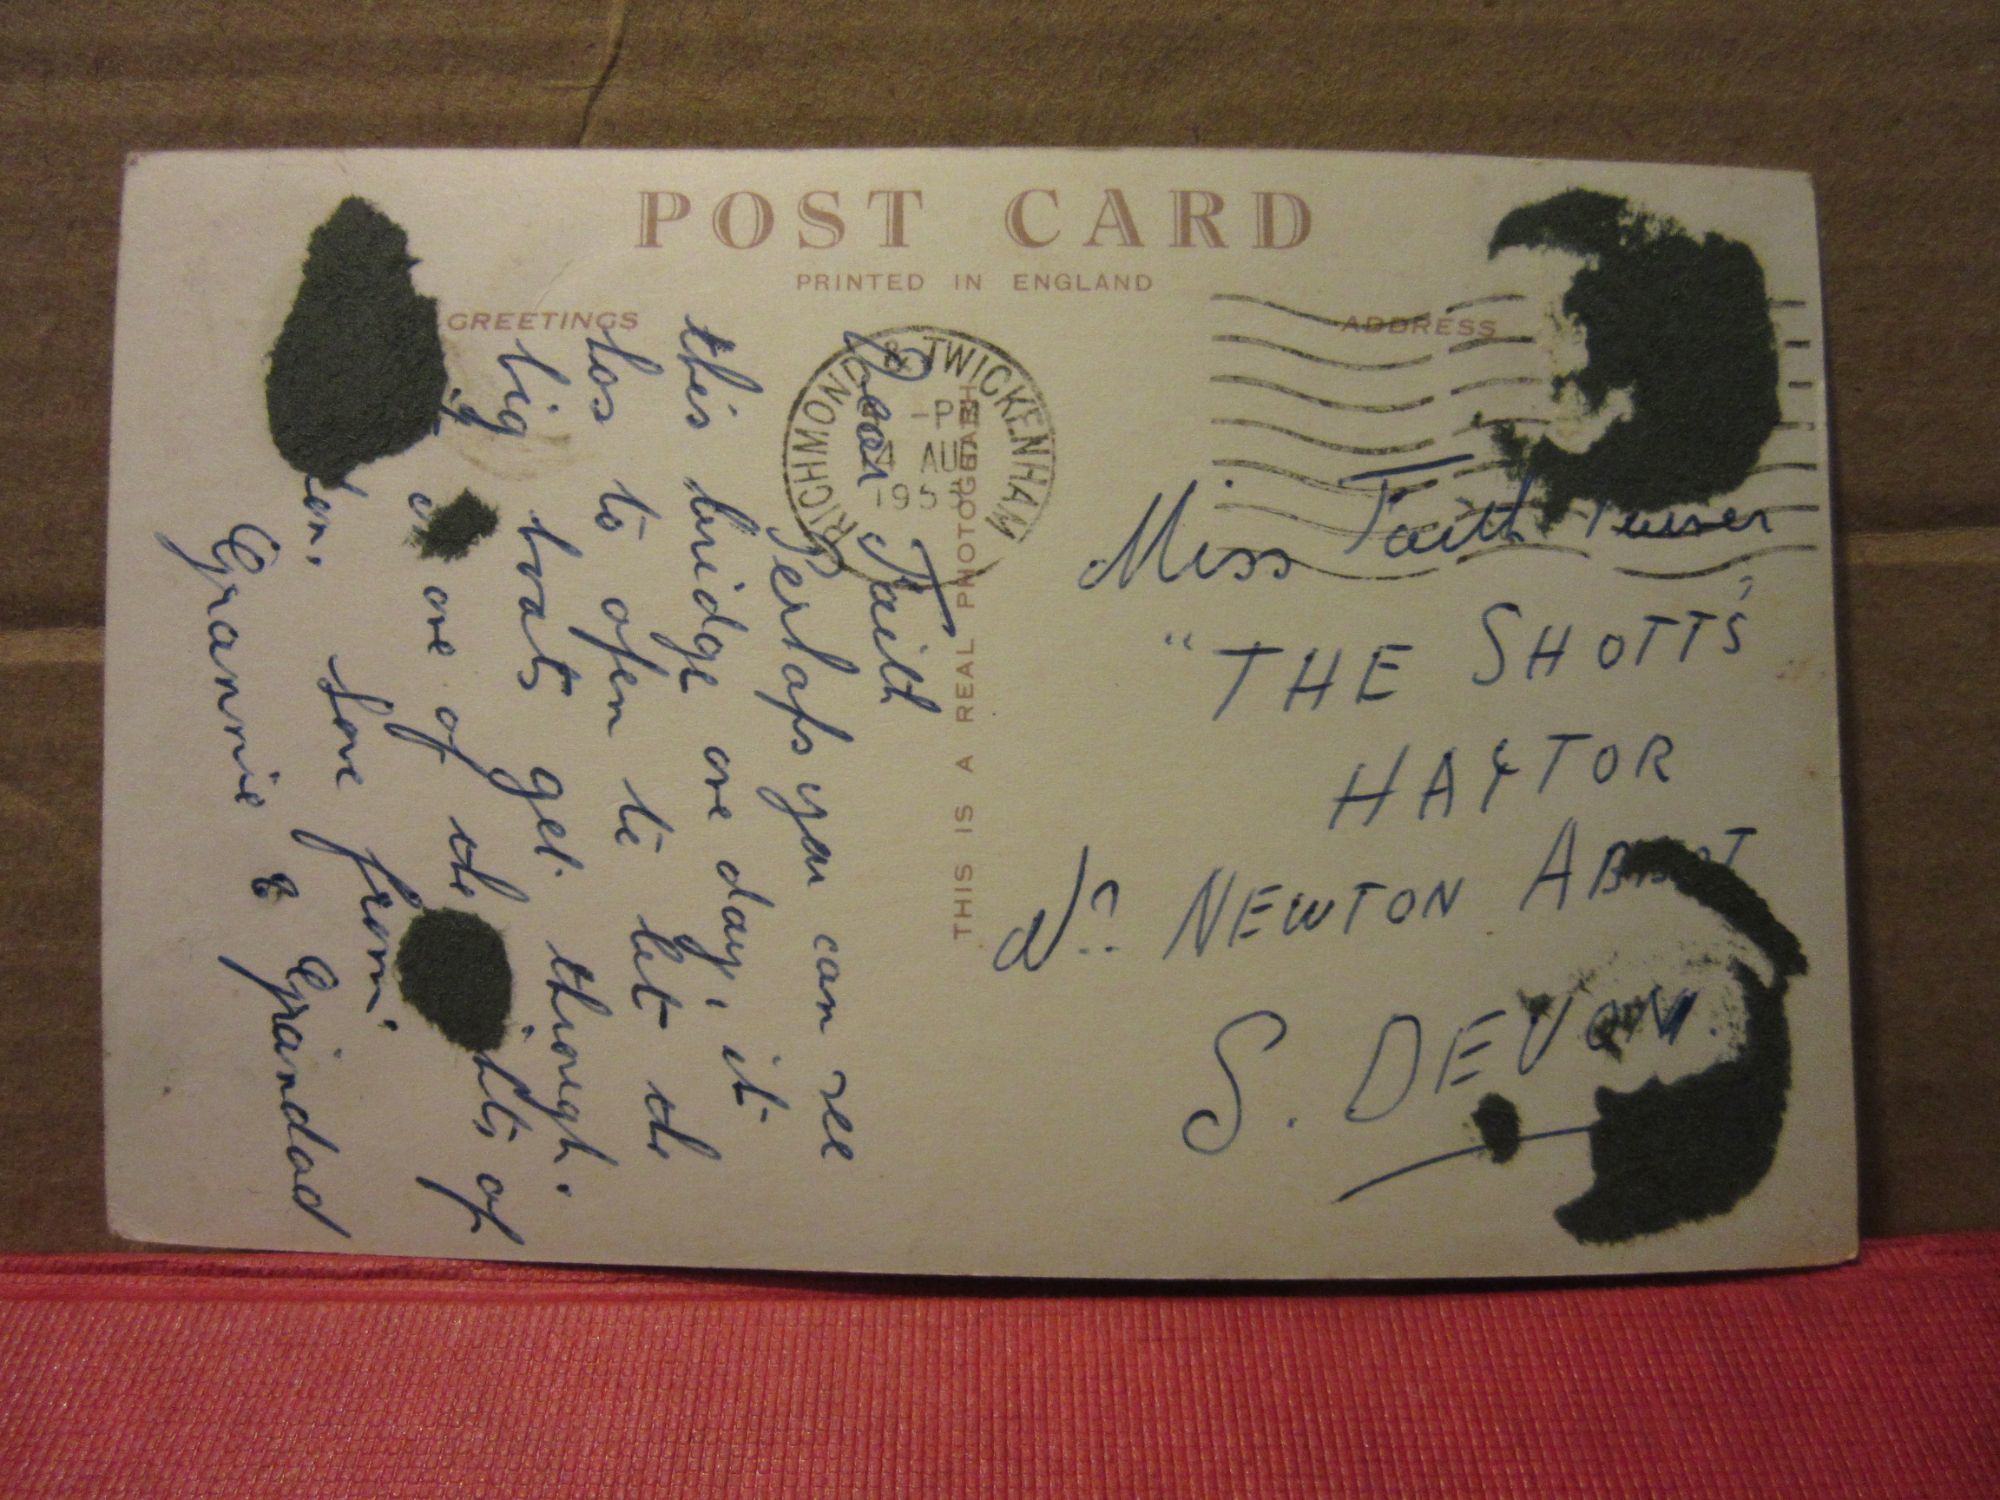 POST CARD
PRINTED IN ENGLAND
GREETINGS
ADDRESS
RICHMOND & TWICKENHAM
AUG
THIS IS A REAL PHOTOGRAPH
Dear Faith
Perhaps you can see
this bridge one day, it
has to open to let the
big boats get through.
It one of the of
Love from
Grannie & Grandad
Miss Faith
"THE SHOTT'S
HAYTOR
Nr NEWTON ABBOT
S. DEVON.